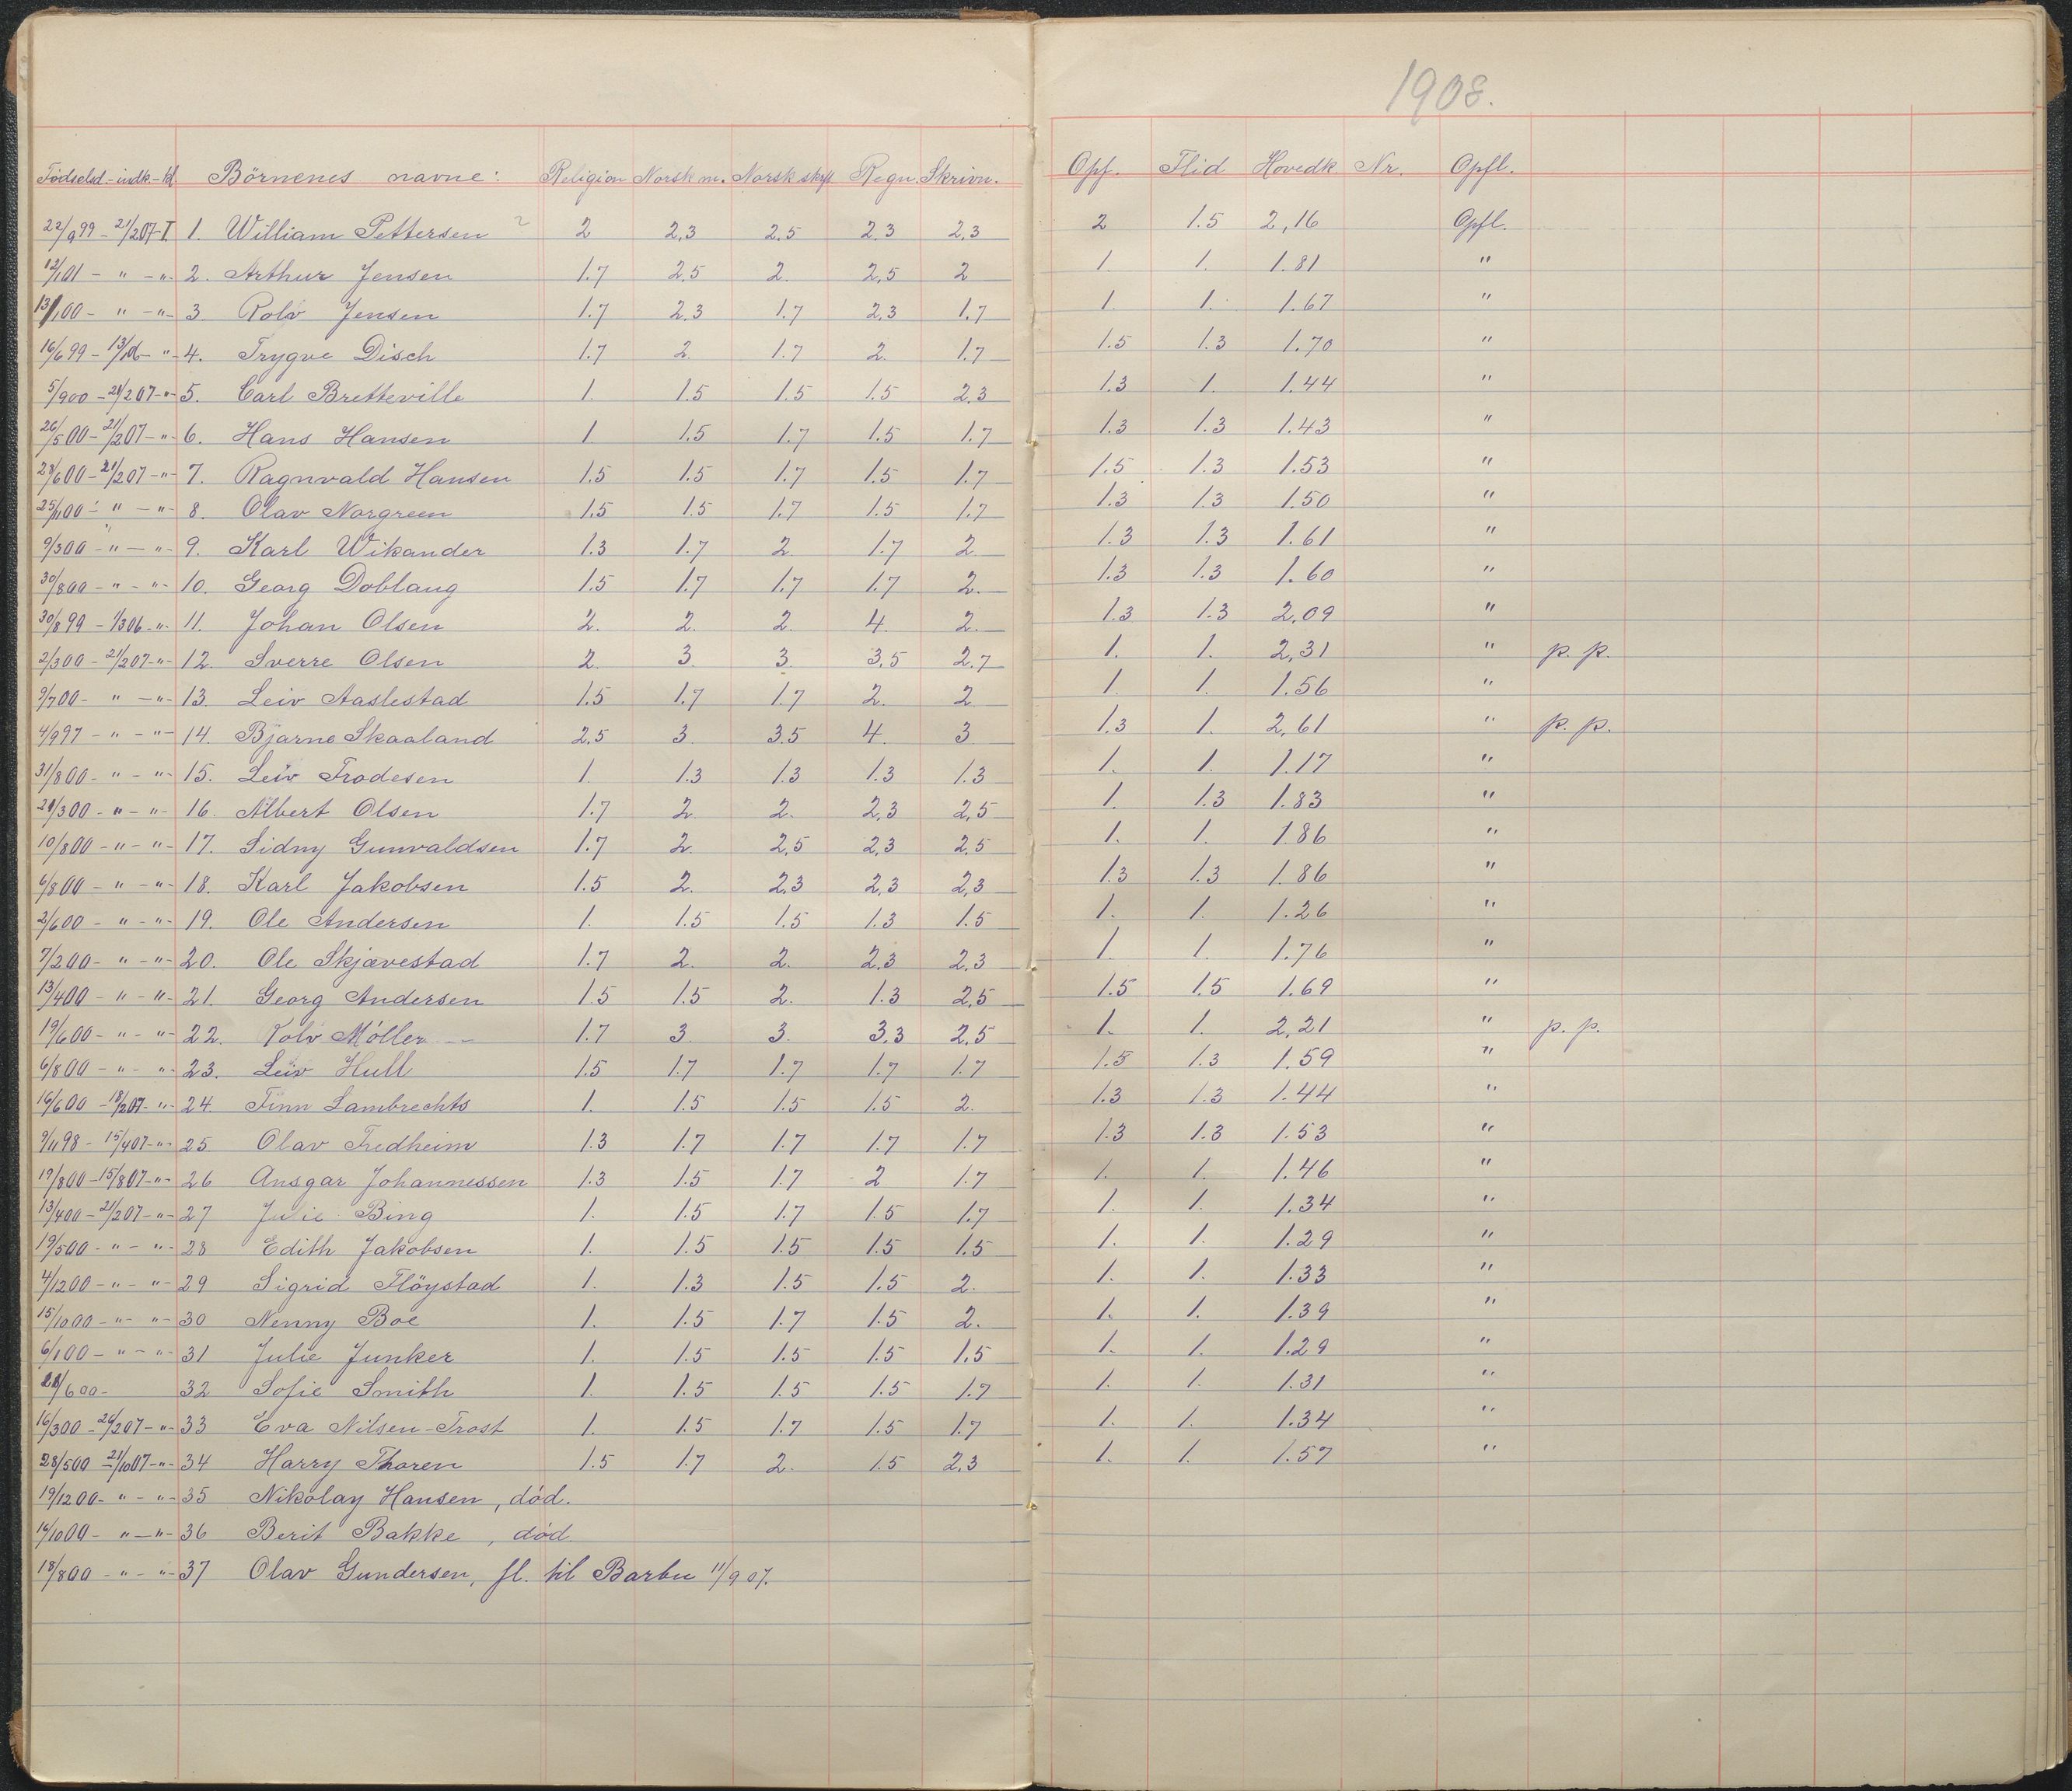 1908.
Fødselsd.-indk.-kl Börnenes navne: Religion Norsk m. Norsk skrf. Regn. Skrivn. Opf. Flid Hovedk. Nr. Opfl.
22/9 99 - 21/2 07-I. 1. William Pettersen 2 2,3 2,5 2.3 2,3 2 1.5 2,16 Opfl.
12/1 01 - " - "- 2. Arthur Jensen 1.7 2.5 2. 2,5 2 1. 1. 1.81 "
13/1 00 - " - "- 3 Rolv Jensen 1.7 2.3 1.7 2,3 1.7 1. 1. 1.67 "
16/6 99 - 13/ 06- "- 4. Trygve Disch 1.7 2. 1.7 2. 1.7 1.5 1.3 1.70 "
5/9 00 - 21/2 07-"- 5. Carl Bretteville 1. 1.5 1.5 1.5 2.3 1.3 1. 1.44 "
26/5 00 - 21/2 07-"- 6. Hans Hansen 1. 1.5 1.7 1.5 1.7 1.3 1.3 1.43 "
28/6 00 - 21/2 07-"- 7. Ragnvald Hansen 1.5 1.5 1.7 1.5 1.7 1.5 1.3 1.53 "
25/11 00 - " - "- 8. Olav Norgreen 1.5 1.5 1.7 1.5 1.7 1.3 1.3 1.50 "
9/3 00 - " - "- 9. Karl Wikander 1.3 1.7 2 1.7 2 1.3 1.3 1.61 "
30/8 00 - " - "- 10. Georg Doblaug 1.5 1.7 1.7 1.7 2. 1.3 1.3 1.60 "
30/8 99 - 1/3 06-"- 11. Johan Olsen 2. 2. 2. 4. 2. 1.3 1.3 2,09 "
2/3 00 - 21/2 07-"- 12. Sverre Olsen 2. 3. 3. 3,5 2.7 1. 1. 2,31 " p. p.
9/7 00 - " - "- 13. Leiv Aaslestad 1.5 1.7 1.7 2. 2. 1. 1. 1.56 "
4/9 97 - " - "- 14. Bjarne Skaaland 2.5 3. 3.5 4. 3. 1.3 1. 2,61 " p. p.
31/8 00 - " - "- 15. Leiv Frodesen 1. 1.3 1.3 1.3 1.3 1. 1. 1.17 "
29/3 00 - " - "- 16. Albert Olsen 1.7 2 2. 2,3 2,5 1. 1.3 1.83 "
10/8 00 - " - "- 17. Sidny Gunvaldsen 1.7 2. 2,5 2,3 2,5 1. 1. 1.86 "
6/8 00 - " - "- 18. Karl Jakobsen 1.5 2. 2,3 2,3 2,3 1.3 1.3 1.86 "
2/6 00 - " - "- 19. Ole Andersen 1. 1.5 1.5 1.3 1.5 1. 1. 1.26 "
7/2 00 - " - "- 20. Ole Skjævestad 1.7 2. 2. 2,3 2,3 1. 1. 1.76 "
13/4 00 - " - "- 21. Georg Andersen 1.5 1.5 2. 1.3 2,5 1.5 1.5 1.69 "
19/6 00 - " - "- 22. Rolv Möller 1.7 3 3. 3.3 2,5 1. 1. 2,21 " p. p.
6/8 00 - " - "- 23. Leiv Hull 1.5 1.7 1.7 1.7 1.7 1.5 1.3 1.59 "
16/6 00 - 18/2 07-"- 24. Finn Lambrechts 1. 1.5 1.5 1.5 2. 1.3 1.3 1.44 "
9/11 98 - 15/4 07-"- 25 Olav Fredheim 1.3 1.7 1.7 1.7 1.7 1.3 1.3 1.53 "
19/8 00 - 15/8 07-"- 26 Ansgar Johannessen 1.3 1.5 1.7 2 1.7 1. 1. 1.46 "
13/4 00 - 21/2 07-"- 27 Julie Bing 1. 1.5 1.7 1.5 1.7 1. 1. 1.34 "
19/5 00 - " - "- 28 Edith Jakobsen 1. 1.5 1.5 1.5 1.5 1. 1. 1.29 "
4/12 00 - " - "- 29 Sigrid Flöystad 1. 1.3 1.5 1.5 2. 1. 1. 1.33 "
15/10 00 - " - "- 30 Nenny Boe 1. 1.5 1.7 1.5 2. 1. 1. 1.39 "
6/1 00 - " - "- 31 Julie Junker 1. 1.5 1.5 1.5 1.5 1. 1. 1.29 "
28/6 00 - 32 Sofie Smith 1. 1.5 1.5 1.5 1.7 1. 1. 1.31 "
16/3 00 - 26/2 07-"- 33 Eva Nilsen-Trost 1. 1.5 1.7 1.5 1.7 1. 1. 1.34 "
28/5 00 - 21/10 07-"- 34 Harry Thoren 1.5 1.7 2. 1.5 2,3 1. 1. 1.57 "
19/12 00 - " - "- 35 Nikolay Hansen, död.
16/10 00 - " - "- 36 Berit Bakke, död
18/8 00 - " - "- 37 Olav Gundersen, fl. til Barbu 11/9 07.